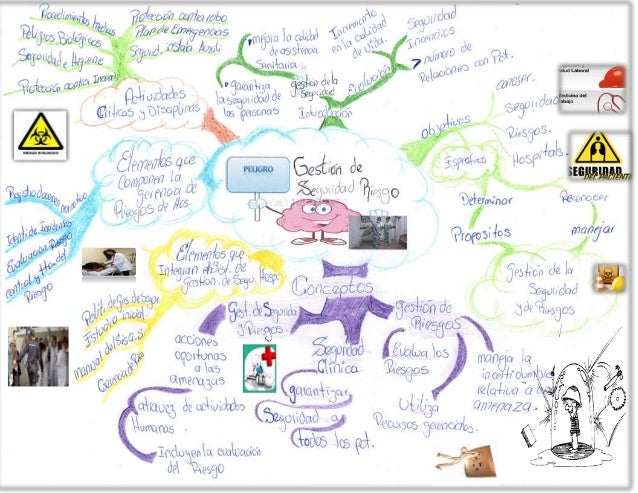 Procedimientos Medicos
Protección contra robo
Plan de Emergencias
Peligros Biológicos
Segurid. instala. Auxili
Seguridad e Higiene
Protección contra Incen
Actividades
Criticas y Disciplinas
mejora la calidad
de asistencia
Sanitaria
garantiza
la seguridad de
las personas
gestión de la
Seguridad
Introducción
Evolución
Incremento
en la calidad
de vida.
Seguridad
Incendios
número de
Relaciones con Pct.
objetivos
Específicos
conocer.
Seguridad
Riesgos.
Hospitals.
Determinar
Propositos
Reconocer
manejar
gestión de la
Seguridad
y de Riesgos
Salud Laboral
Medicina del
Trabajo
RIESGO BIOLÓGICO
SEGURIDAD
DEL PACIENTE
PELIGRO
Gestión de
Seguridad Riesgo
Elementos que
Componen la
gerencia de
Riesgos de Hos.
Registro docu
Identi. de Incidentes
Evaluación Riesgo
control y tto del
Riesgo
Elementos que
Integran el Sist. de
gestión de Segu. Hosp.
Politi. de Gós de Segur.
Estudio inicial.
manual del S.G.S
Gerencia de Rie
Conceptos
Gest. de Segurida
y Riesgos
acciones
oportunas
a las
amenazas
atravez de actividades
Humanas.
Incluyen la evaluación
del Riesgo
Seguridad
Clínica
garantizar
Seguridad a
todos los pct.
gestión de
Riesgos
Evalua los
Riesgos
Utiliza
Recursos gerenciales.
maneja la
incertidumbre
relativa a una
amenaza.